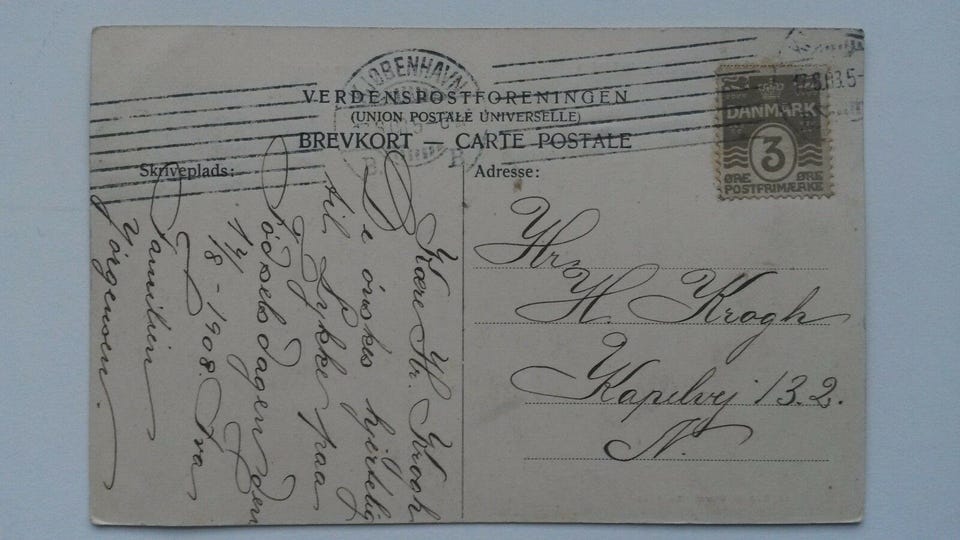 KJØBENHAVN
VERDENSPOSTFORENINGEN
(UNION POSTALE UNIVERSELLE)
BREVKORT — CARTE POSTALE
Skriveplads:
Adresse:
DANMARK
3
ØRE ØRE
POSTFRIMÆRKE
Kære Hr. Krogh
De önskes hjertelig
til Lykke paa
Födselsdagen den
17/8 - 1908. Fra
Familien
Jörgensen.
Hr.
H. Krogh
Kapelvej 13.2.
N.